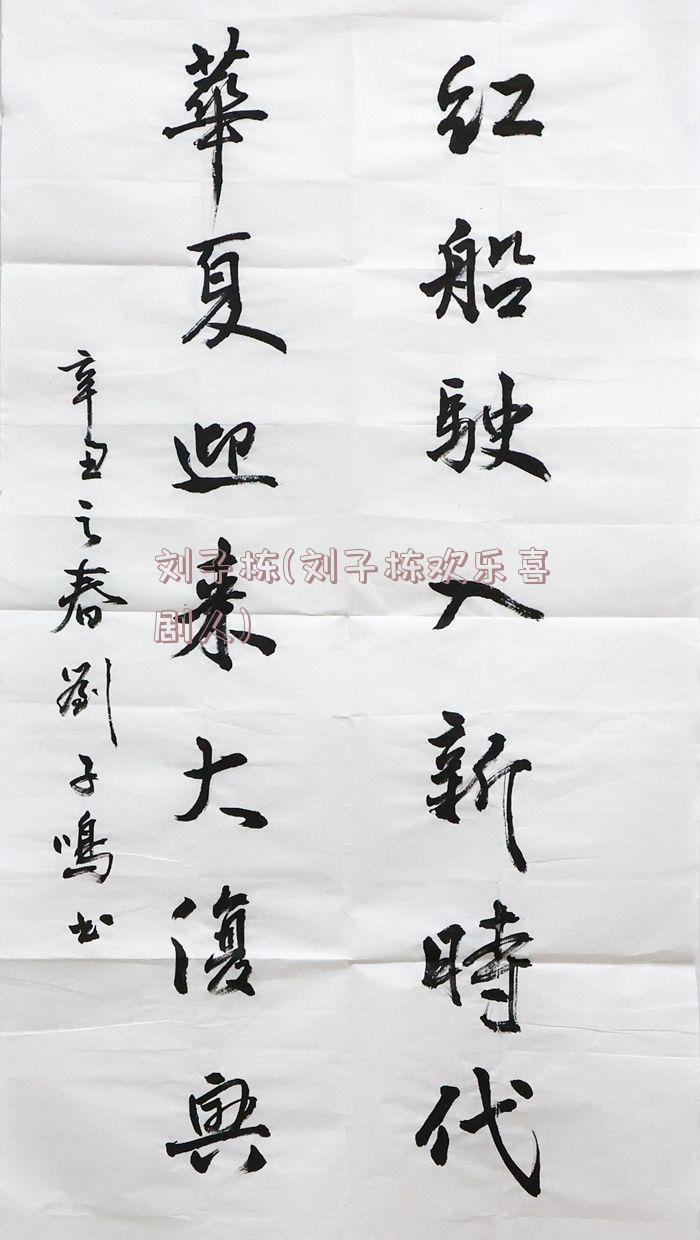 红船驶入新時代
華夏迎来大復興
辛丑之春劉子鳴书
刘子栋(刘子栋欢乐喜
剧人)